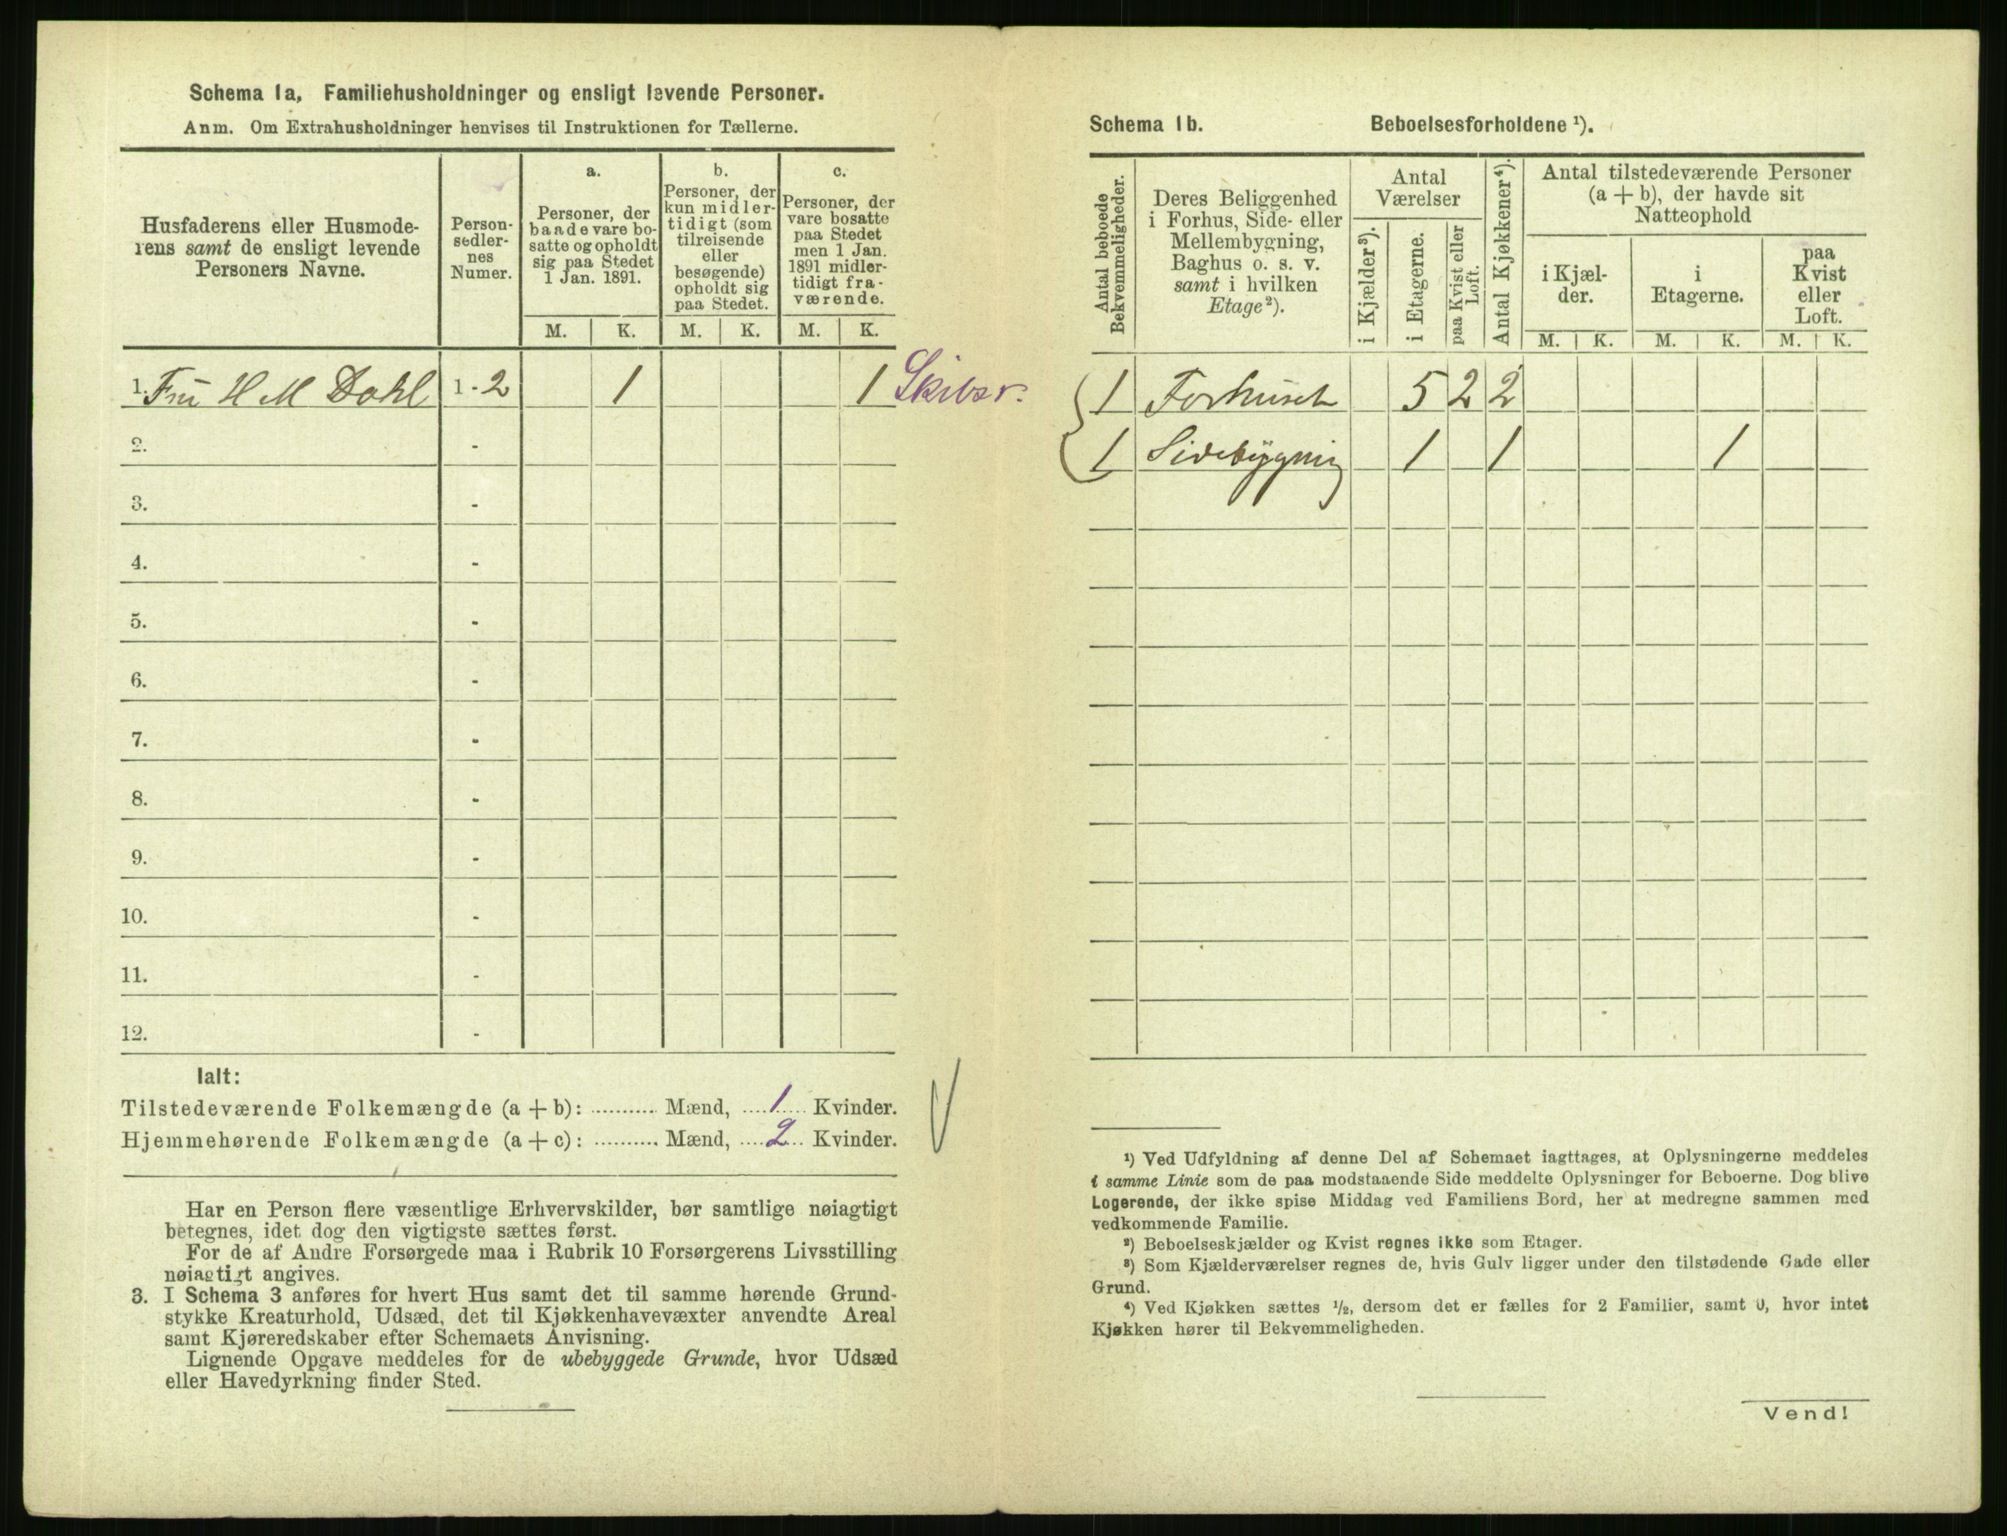 Schema 1a, Familiehusholdninger og ensligt levende Personer.
Anm. Om Extrahusholdninger henvises til Instruktionen for Tællerne.
Husfaderens eller Husmode-
rens samt de ensligt levende
Personers Navne.
Person-
sedler-
nes
Numer.
a.
Personer, der
baade vare bo-
satte og opholdt
sig paa Stedet
1 Jan. 1891.
b.
Personer, der
kun midler-
tidigt (som
tilreisende
eller
besøgende)
opholdt sig
paa Stedet.
c.
Personer, der
vare bosatte
paa Stedet
men 1 Jan.
1891 midler-
tidigt fra-
værende.
M. K. M. K. M. K.
1. Fru H M Dahl 1-2 1 1 Skibsr.
2. -
3. -
4. -
5. -
6. -
7. -
8. -
9. -
10. -
11. -
12. -
Ialt:
Tilstedeværende Folkemængde (a + b): .......... Mænd, ....1.... Kvinder.
Hjemmehørende Folkemængde (a + c): .......... Mænd, ....2.... Kvinder.
Har en Person flere væsentlige Erhvervskilder, bør samtlige nøiagtigt
betegnes, idet dog den vigtigste sættes først.
For de af Andre Forsørgede maa i Rubrik 10 Forsørgerens Livsstilling
nøiagtigt angives.
3. I Schema 3 anføres for hvert Hus samt det til samme hørende Grund-
stykke Kreaturhold, Udsæd, det til Kjøkkenhavevæxter anvendte Areal
samt Kjøreredskaber efter Schemaets Anvisning.
Lignende Opgave meddeles for de ubebyggede Grunde, hvor Udsæd
eller Havedyrkning finder Sted.
Schema 1b. Beboelsesforholdene ¹).
Antal beboede
Bekvemmeligheder.
Deres Beliggenhed
i Forhus, Side- eller
Mellembygning,
Baghus o. s. v.
samt i hvilken
Etage²).
Antal
Værelser
i Kjælder³).
i Etagerne.
paa Kvist eller
Loft.
Antal Kjøkkener⁴).
Antal tilstedeværende Personer
(a + b), der havde sit
Natteophold
i Kjæl-
der.
i
Etagerne.
paa
Kvist
eller
Loft.
M. K. M. K. M. K.
1 Forhuset 5 2 2
1 Sidebygning 1 1 1
¹) Ved Udfyldning af denne Del af Schemaet iagttages, at Oplysningerne meddeles
i samme Linie som de paa modstaaende Side meddelte Oplysninger for Beboerne. Dog blive
Logerende, der ikke spise Middag ved Familiens Bord, her at medregne sammen med
vedkommende Familie.
²) Beboelseskjælder og Kvist regnes ikke som Etager.
³) Som Kjælderværelser regnes de, hvis Gulv ligger under den tilstødende Gade eller
Grund.
⁴) Ved Kjøkken sættes ½, dersom det er fælles for 2 Familier, samt 0, hvor intet
Kjøkken hører til Bekvemmeligheden.
Vend!